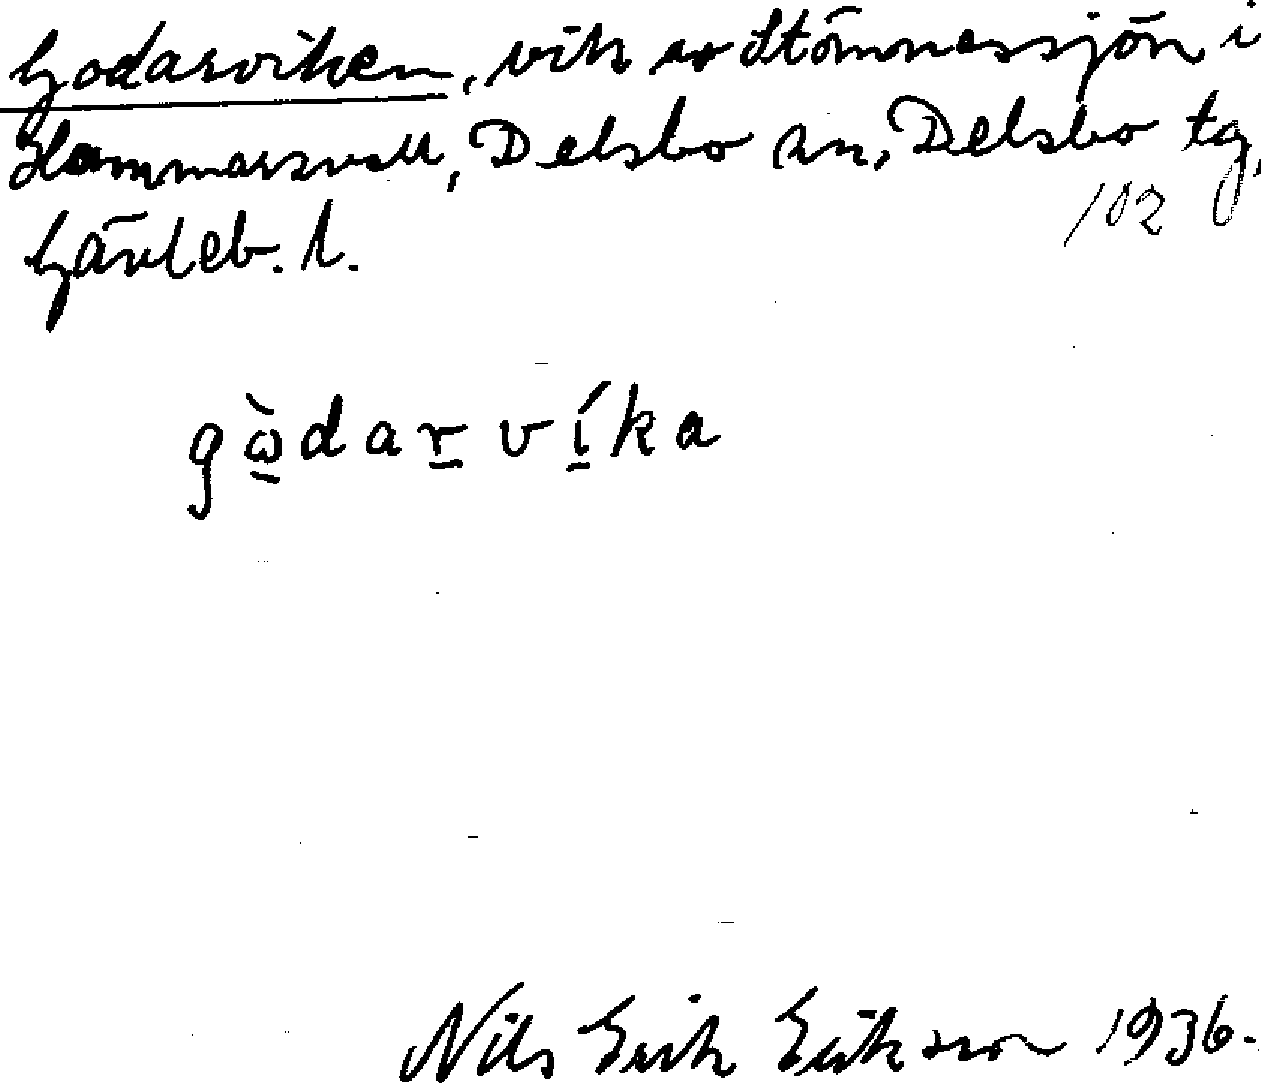 Godarsviken, vik av Stömnessjön i
Hammarsvall, Delsbo sn, Delsbo tg,
102
Gävleb. l.
gὼ̱daṟví̱ka
Nils Erik Erikson 1936.